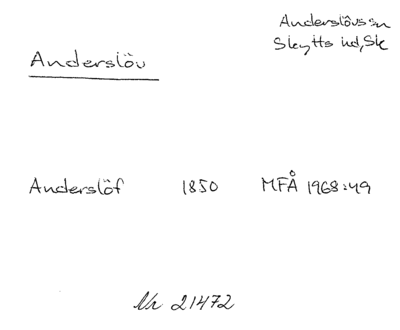 Anderslövs sn
Skytts hd, Sk
Anderslöv
Anderslöf 1850 MFÅ 1968:49
Nr 21472